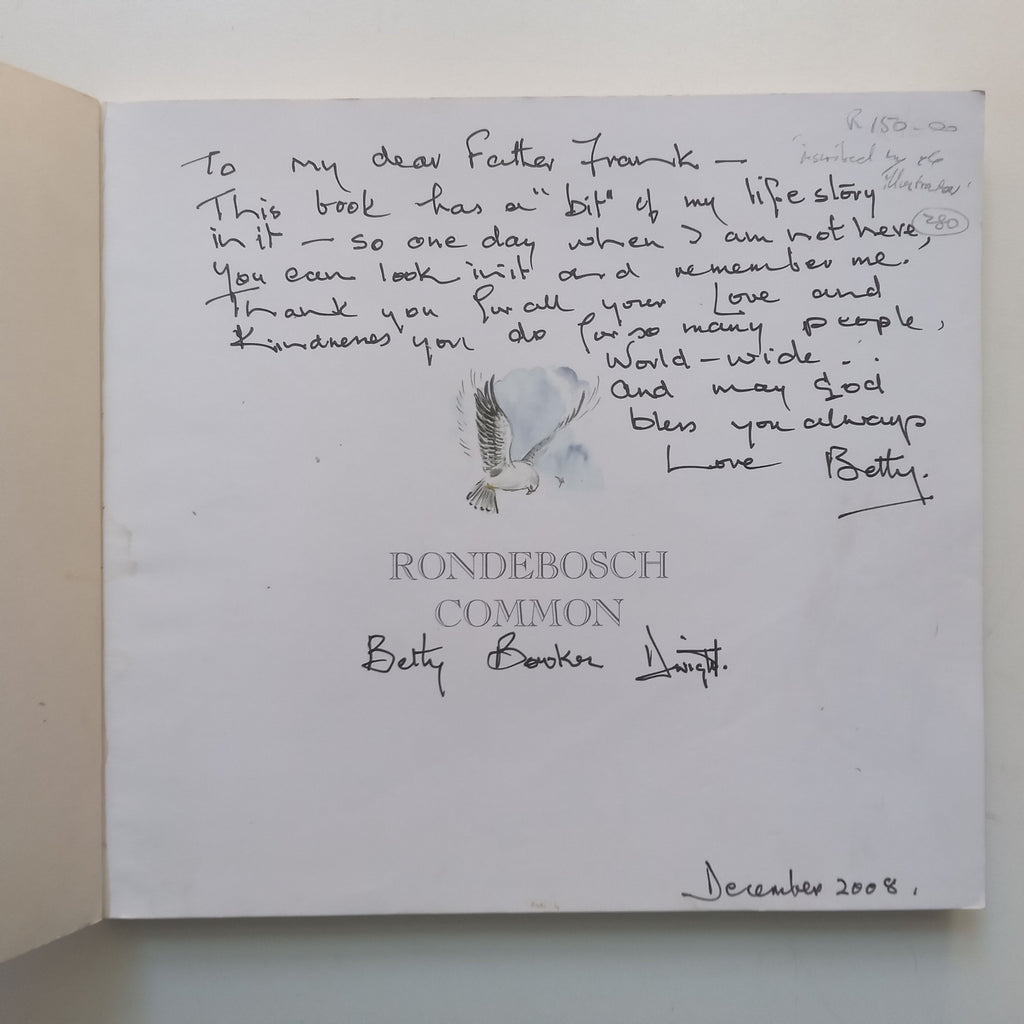 R 150-00
inscribed by the
illustrator
280
To my dear Father Frank —
This book has a "bit" of my life story
in it — so one day when I am not here,
you can look in it and remember me.
Thank you for all your Love and
Kindness you do for so many people,
World-wide . .
and may God
bless you always
Love Betty.
RONDEBOSCH
COMMON
Betty Bowker Dwight.
December 2008.